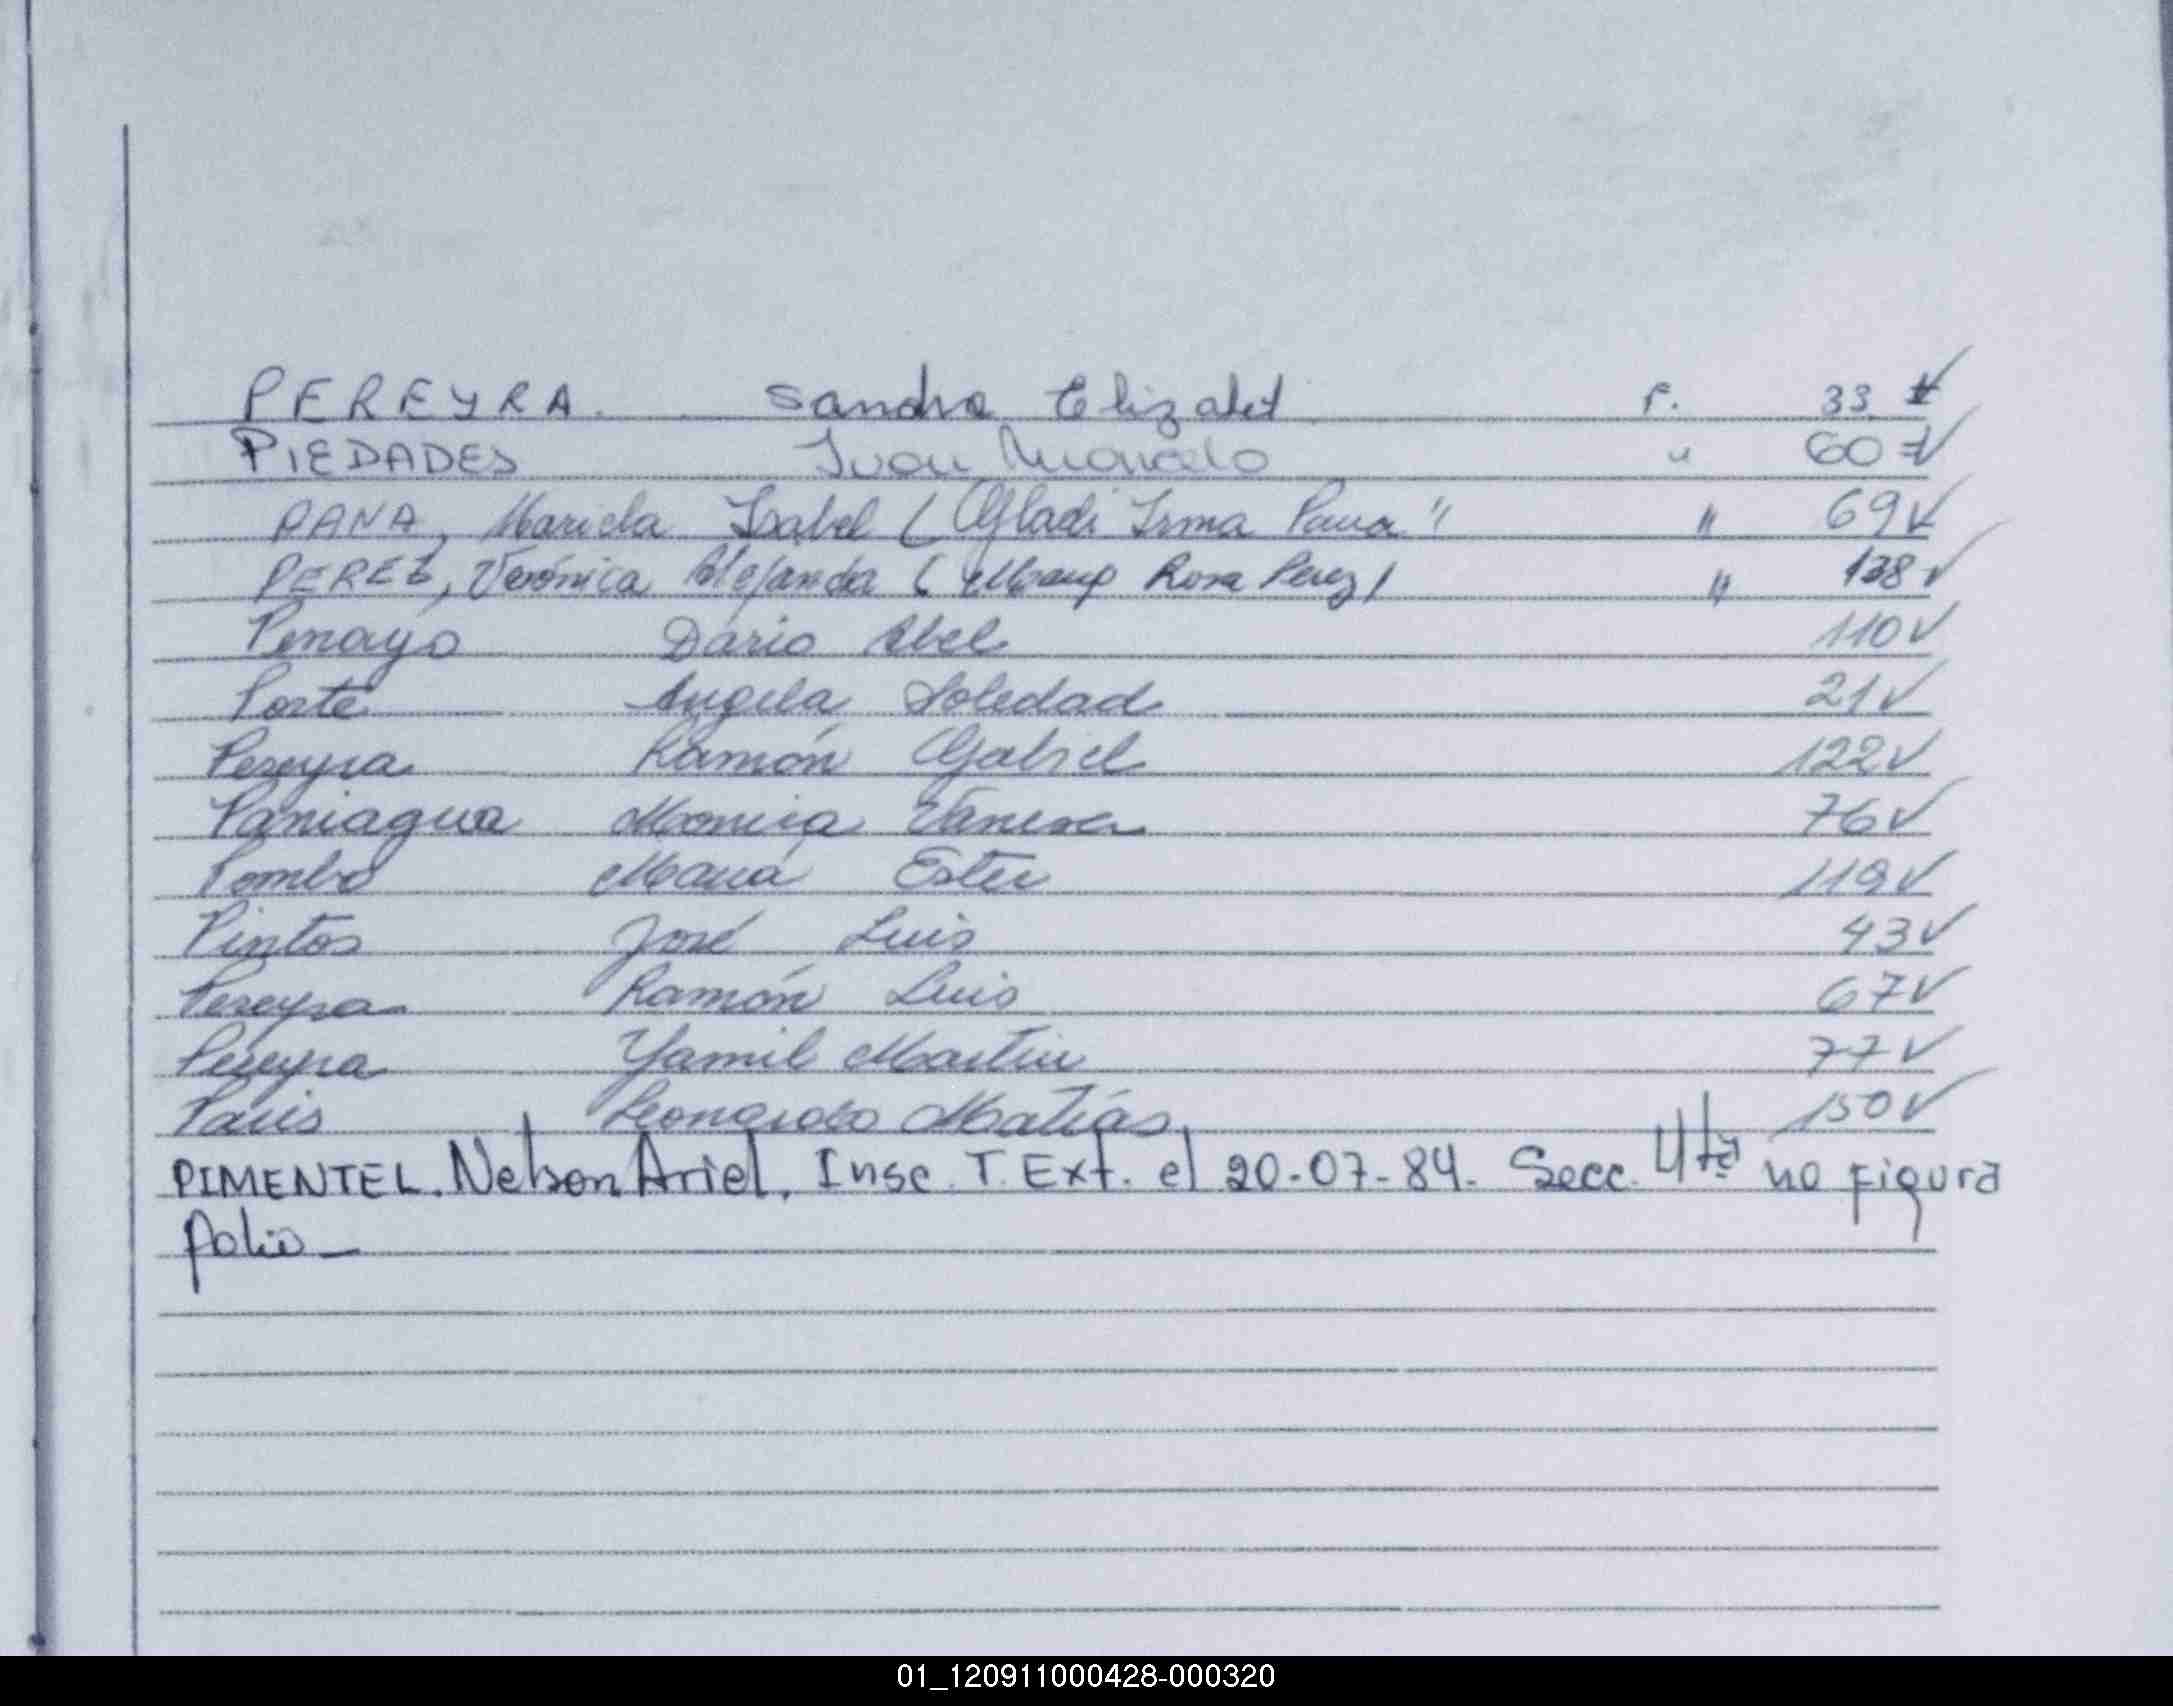 PEREYRA. Sandra Elizabet F. 33 ✓
PIEDADES Juan Marcelo " 60 ✓
PANA, Mariela Isabel ( Gladi Irma Pana " " 69 ✓
PEREZ, Verónica Alejandra ( Rosa Perez ) " 138 ✓
Penayo Dario Abel 110 ✓
Porte Angela Soledad 21 ✓
Pereyra Ramón Gabriel 122 ✓
Paniagua Monica Vanesa 76 ✓
Pombo María Ester 119 ✓
Pintos José Luis 43 ✓
Pereyra Ramón Luis 67 ✓
Pereyra Yamil Martin 77 ✓
Paris Leonardo Matías 150 ✓
PIMENTEL. Nelson Ariel. Insc. T. Ext. el 20-07-84. Secc. 4ta no figura
folio_
01_120911000428-000320